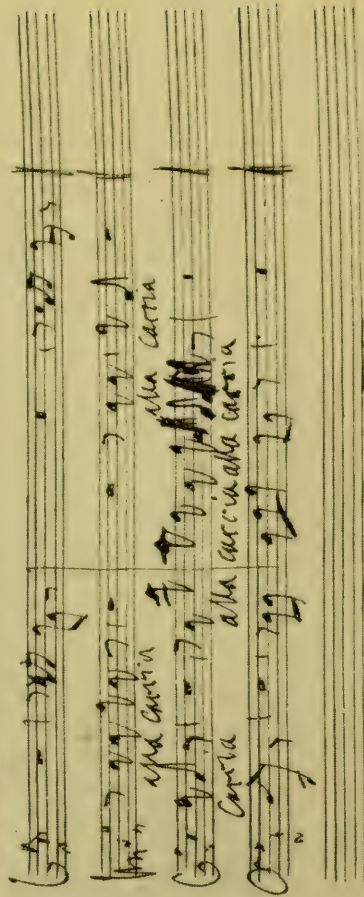 alla caccia alla caccia
caccia alla caccia alla caccia
2